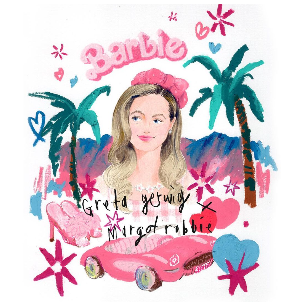 Barbie
Greta gerwig x
Margot robbie